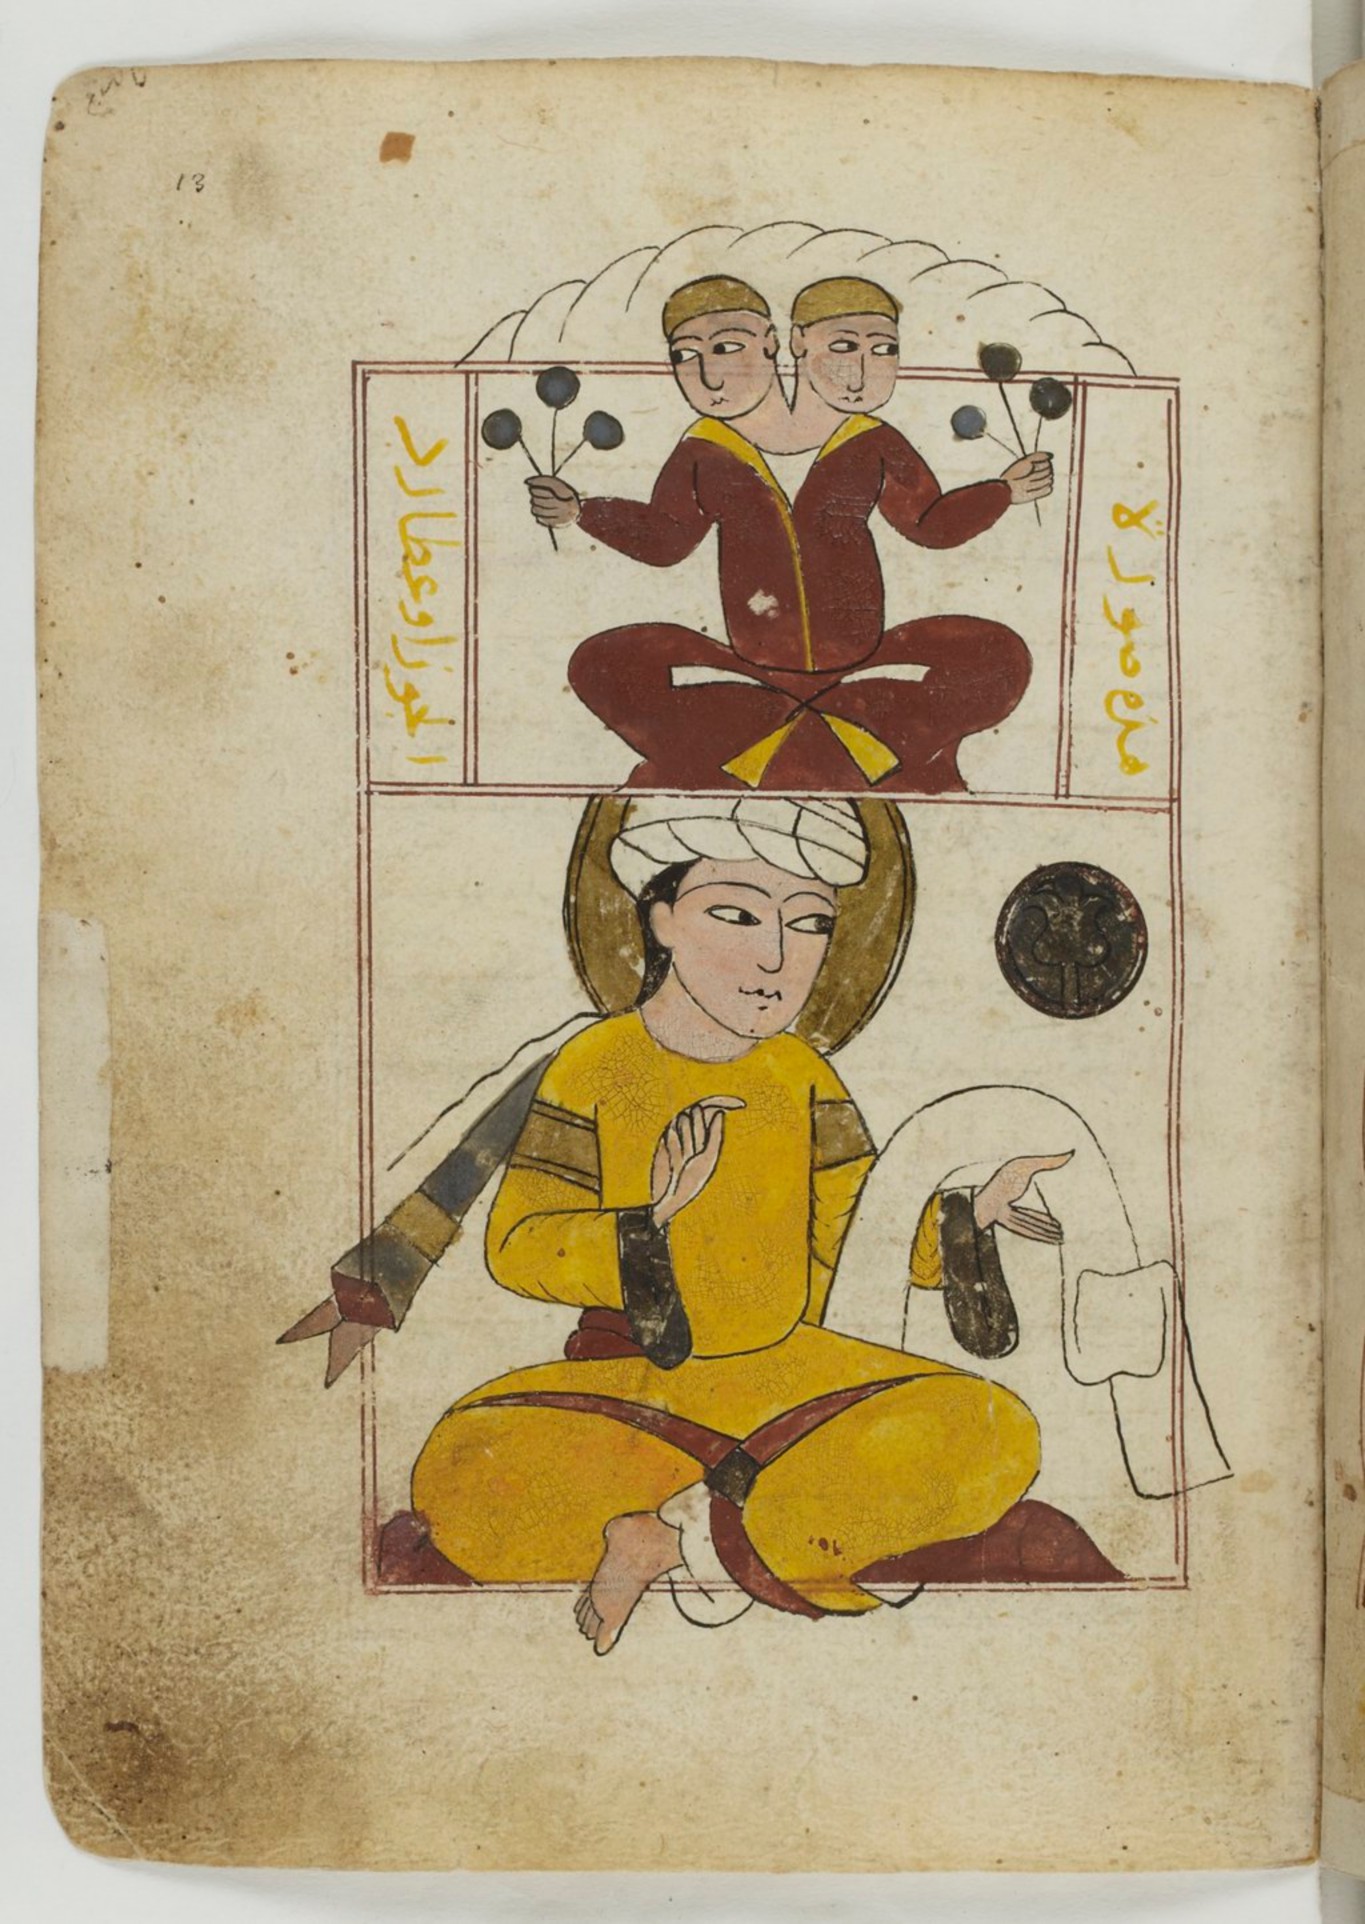 13
صورة
الجوزا وعطارد